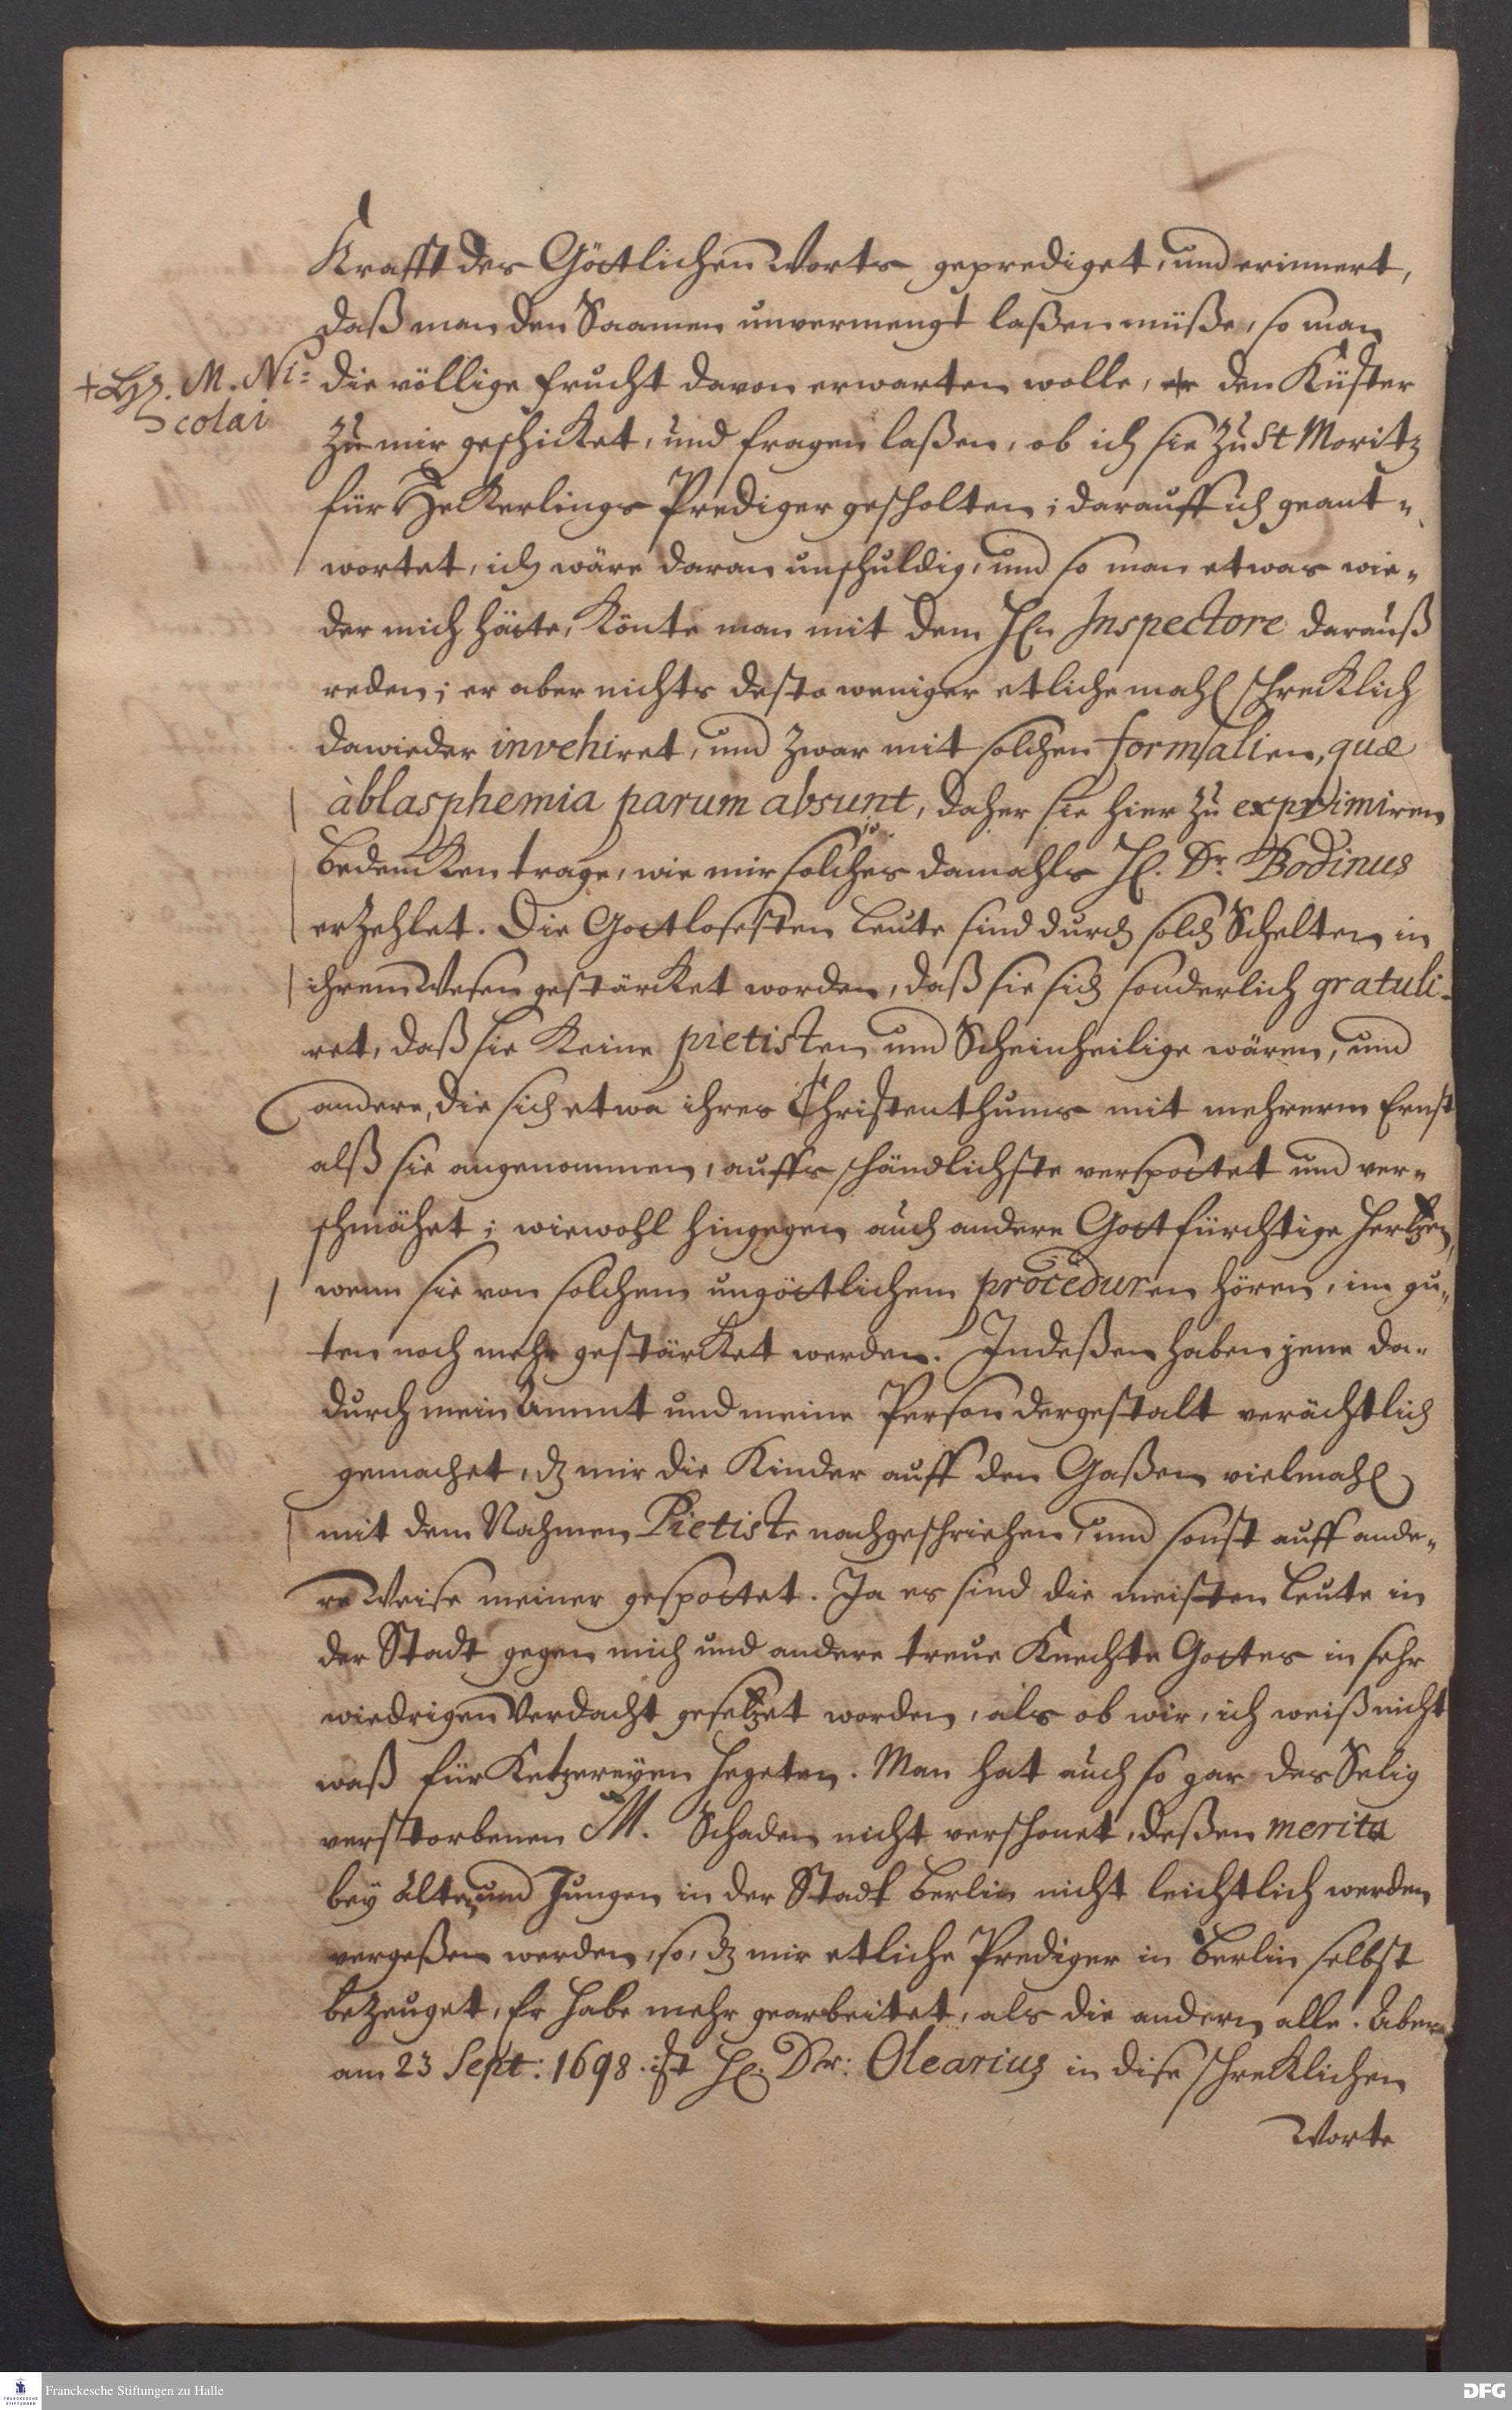 Krafft des Göttlichen Worts geprediget, und erinnert,
daß man den Saamen unvermengt laßen müße, so man
+ Hr. M. Ni=
colai
die völlige frucht davon erwarten wolle, er den Küster
zu mir geschicket, und fragen laßen, ob ich sie zu St Moritz
für Hekerlings Prediger gescholten; darauff ich geant-
wortet, ich wäre daran unschuldig, und so man etwas wie-
der mich hätte, Könte man mit dem Hln Inspectore darauß
reden; er aber nichts desto weniger etliche mahl schreklich
dawieder invehiret, und zwar mit solchen formalien, quæ
à blasphemia parum absunt, daher sie hier zu exprimiren
bedenken trage, wie mir solches damahls Hl. Dr. Bodinus
erzehlet. Die Gottlosesten Leute sind durch solch Schelten in
ihrem Wesen gestärket worden, daß sie sich sonderlich gratuli-
ret, daß sie Keine pietisten und Scheinheilige wären, und
andere, die sich etwa ihres Christenthums mit mehrerm Ernst
alß sie angenommen, auffs schändlichste verspottet und ver-
schmähet; wiewohl hingegen auch andere Gottfürchtige Hertzen,
wenn sie von solchem ungöttlichem proceduren hören, im gu-
ten noch mehr gestärket werden. Indeßen haben jene da-
durch mein Ammt und meine Person dergestalt verächtlich
gemachet, dz mir die Kinder auff den Gaßen vielmahl
mit dem Nahmen Pietiste nachgeschriehen, und sonst auff ande-
re Weise meiner gespottet. Ja es sind die meisten Leute in
der Stadt gegen mich und andere treue Knechte Gottes in sehr
wiedrigen Verdacht gesetzet worden, als ob wir, ich weiß nicht
waß für Ketzereyen hegeten. Man hat auch so gar des Selig
verstorbenen M. Schaden nicht verschonet, deßen merita
bey Alten und Jungen in der Stadt Berlin nicht leichtlich werden
vergeßen werden, so, dz mir etliche Prediger in Berlin selbst
bezeuget, Er habe mehr gearbeitet, als die andern alle. Aber
am 23 Sept: 1698 ist Hl. Dr: Olearius in dise schreklichen
Worte
Franckesche Stiftungen zu Halle
DFG